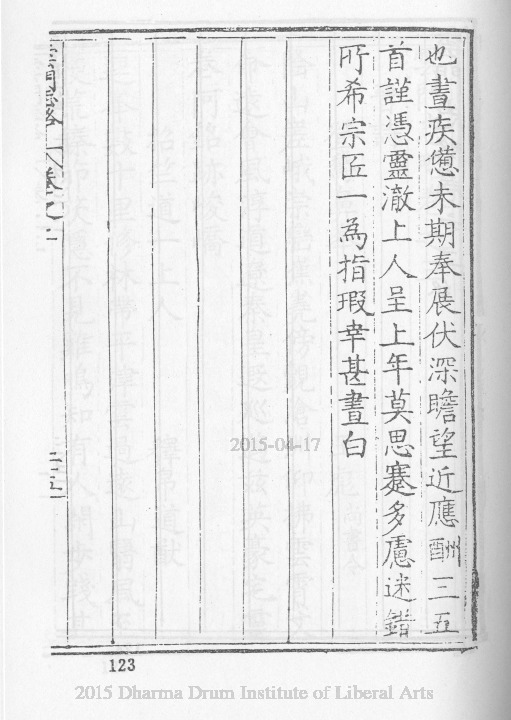 也晝疾憊未期奉展伏深瞻望近應酬三五
首謹憑靈澈上人呈上年莫思蹇多慮迷錯
所希宗匠一為指瑕幸甚晝白
卷之二
二五
123
2015-04-17
2015 Dharma Drum Institute of Liberal Arts